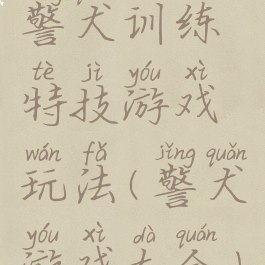 警犬训练
tè jì yóu xì
特技游戏
wán fǎ jǐng quǎn
玩法(警犬
yóu xì dà quán
游戏大全)